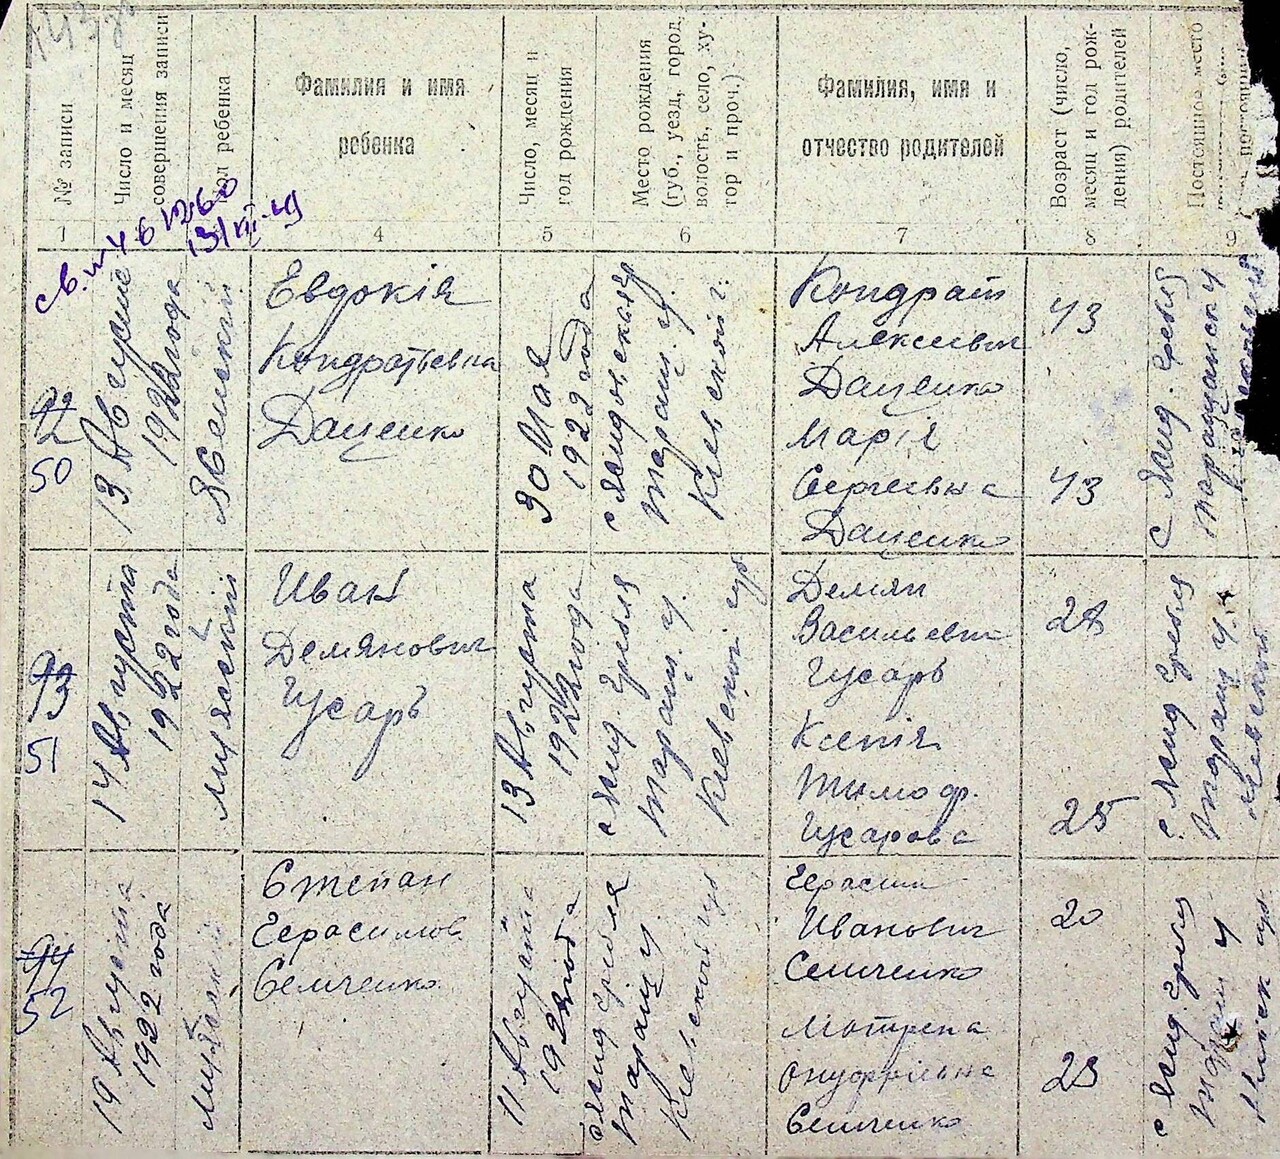 № записи
Число и месяц
совершения записи
Пол ребенка
Фамилия и имя
ребенка
Число, месяц и
год рождения
Место рождения
(губ., уезд, город
волость, село, ху-
тор и проч.)
Фамилия, имя и
отчество родителей
Возраст (число,
месяц и год рож-
дения) родителей
Постоянное место
1
4
5
6
7
8
9
50
13 Августа
1922 года
Женский
Евдокія
Кондратьевна
Даценко
30 Мая
1922 года
Таращ. у.
Кіевской г.
Кондрат
Алексеевич
Даценко
Марія
Сергеевна
Даценко
43
43
93
51
14 Августа
1922 года
мужскій
Иван
Демянович
Гусарь
13 Августа
1922 года
с Жид Гребля
Таращ. у.
Кіевской губ.
Демян
Васильевич
Гусарь
Ксенія
Тимофр.
Гусарова
28
25
с. Жид Гребля
Таращ у.
Кіевской
94
52
19 Августа
1922 года
Степан
Герасимов
Семченко
11 Августа
1922 года
с Жид Гребля
Таращ у
Кіевской губ
Герасим
Иванович
Семченко
Мотрена
Онуфріевна
Семченко
20
23
с Жид. Гребля
Таращ у